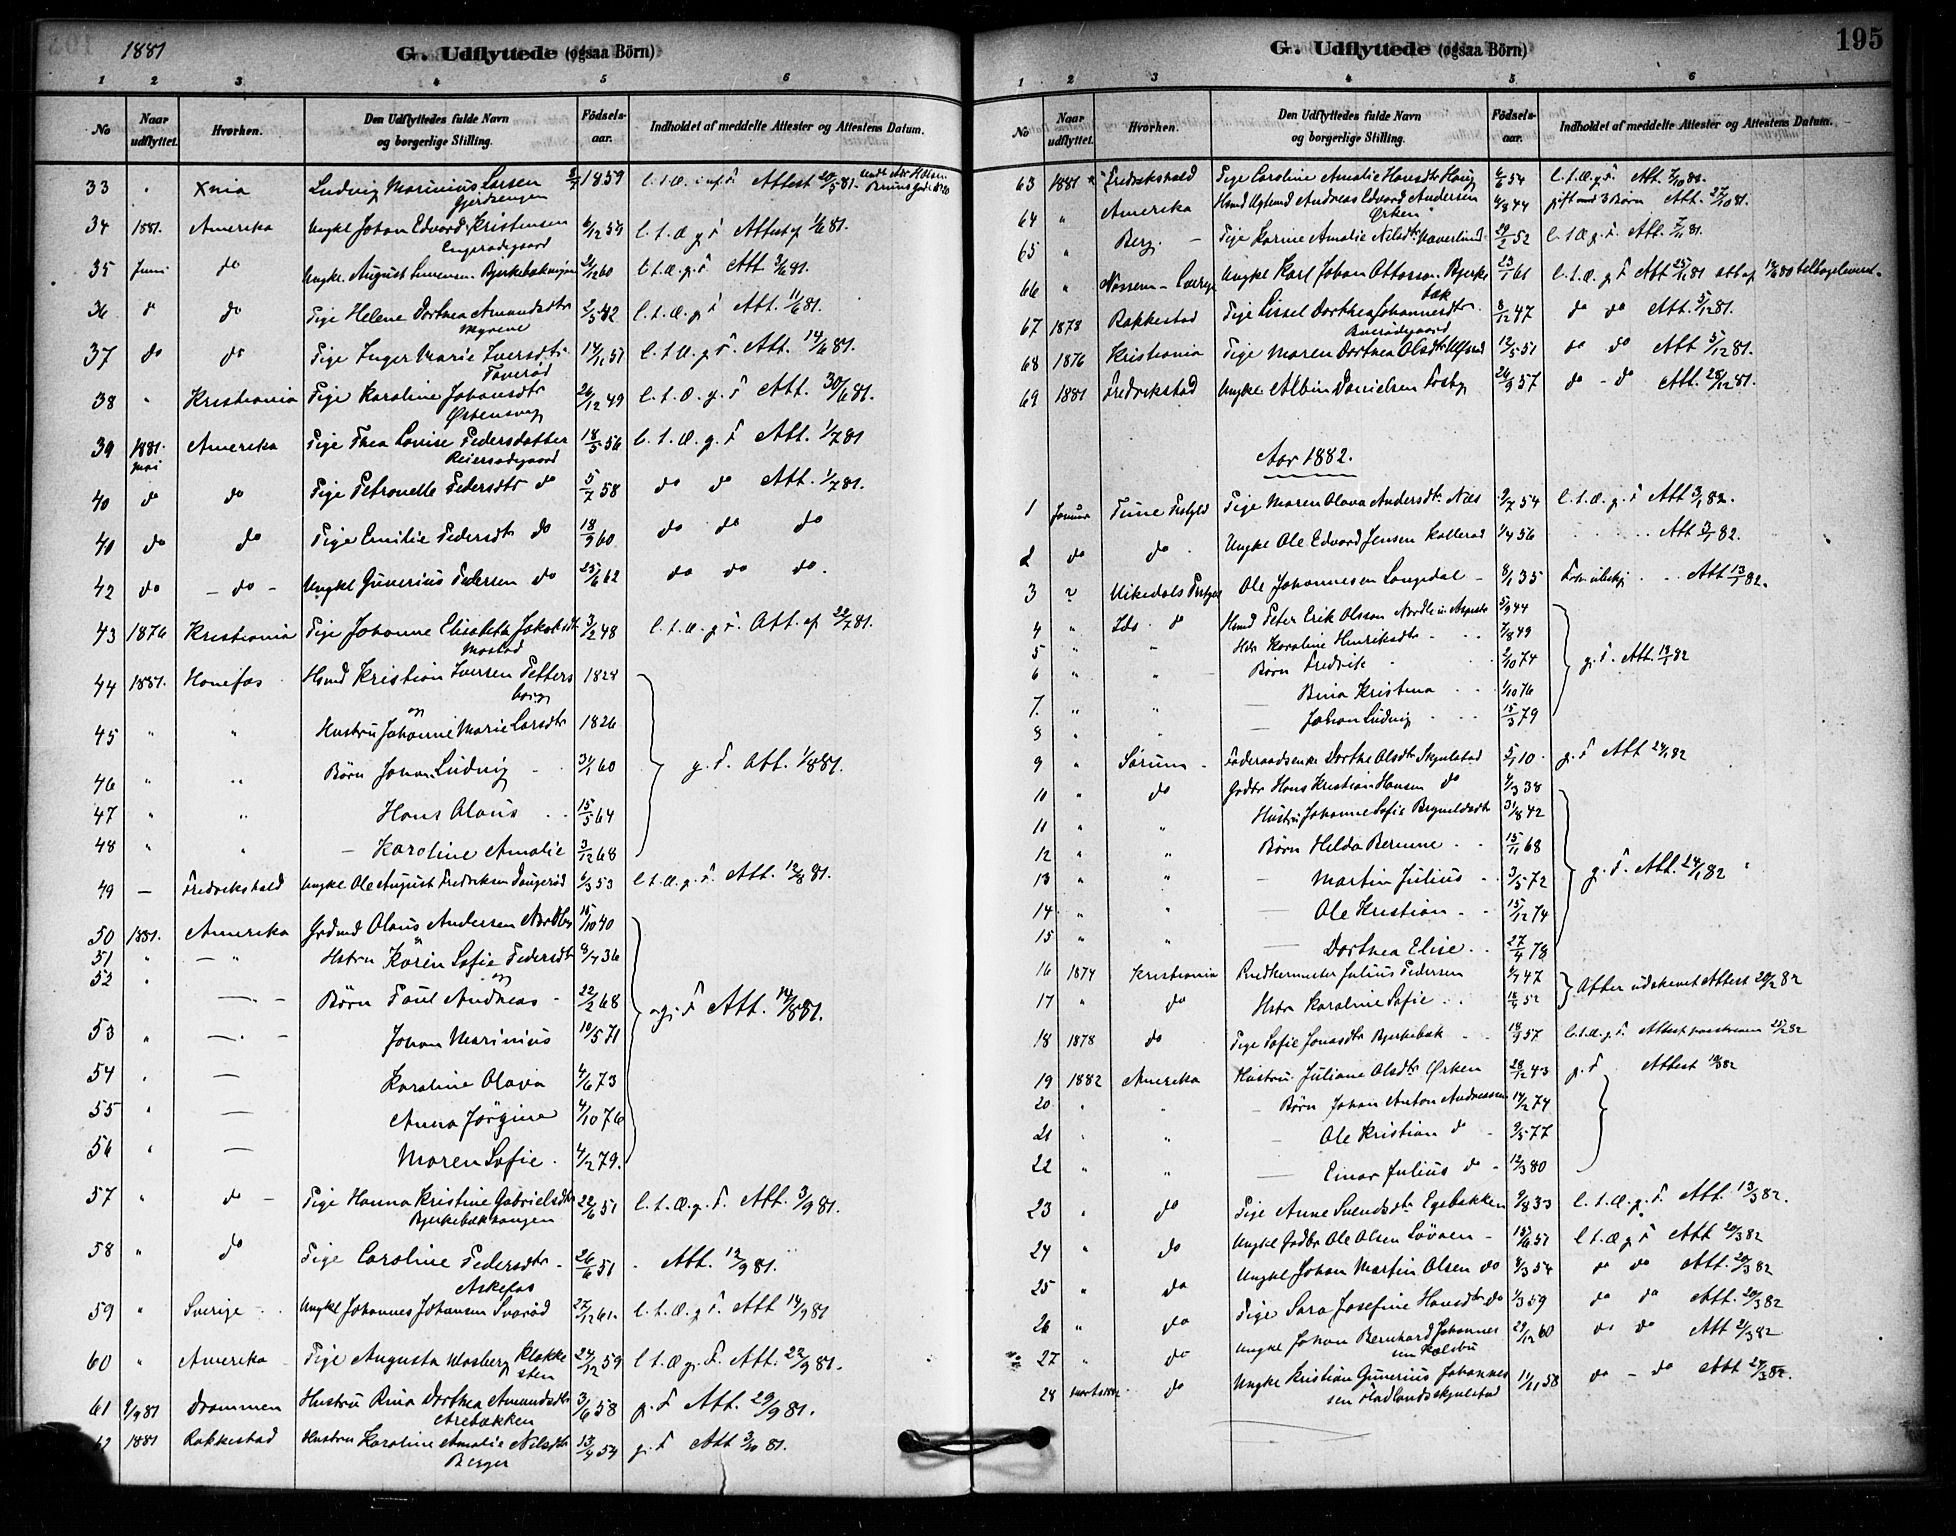 1881
G. Udflyttede (ogsaa Börn)
1 2 3 4 5 6
No
Naar udflyttet.
Hvorhen.
Den Udflyttedes fulde Navn og borgerlige Stilling.
Födsels-aar.
Indholdet af meddelte Attester og Attestens Datum.
33 " Xnia Ludvig Marinius Larsen 1859 Attest 20/5 81.
Gjerdsengen
34 1881. Amerika Ungkl Johan Edvard Kristensen 6/12 54 Attest af 1/6 81.
35 Juni do Ungk. August 60 l. t. æ. g. F. Att. 3/6 81.
36 d do Pige Helene Dorthea Amundsdtr 2/5 42 l. t. æ. g. F. Att. 11/6 81.
Myrene
37 do do Pige Inger Marie Iversdtr 57 l. t. æ. g. F. Att. 14/6 81.
38 " Kristiania Pige Karoline Johansdtr 26/12 49 l. t. æ. g. F. Att. 30/6 81.
39 1881. Mai Amerika Pige Thea Lovise Pedersdatter 18/5 56 l. t. æ. g. F. Att. 1/7 81
40 do do Pige Petronelle Pedersdtr do 5/7 58 do do Att. 1/7 81.
40 do do Pige Emilie Pedersdtr do 18/9 60 do do do
42 do - do - Ungkl Gunerius Pedersen do 25/6 62 do do do.
43 1876 Kristiania Pige Johanne Elisabeth Jakobsdtr 3/2 48 l. t. æ. g. F. Att. af 22/7 81.
44 1881. Hönefos Hsmd Kristian Iversen Petters 1824
borg
45 " " Hustru Johanne Marie Larsdtr 1826
46 " " Börn Johan Ludvig 31/1 60 g. F. Att. 1/8 81.
47 " " Hans Olaus 15/5 64
48 " " - Karoline Amalie 3/12 68
49 — Fredrikshald Ungkl. Ole August Fredriksen 6/3 53 l. t. æ. g. F. Att. 12/8 81.
50 1881. Amerika Grdmd Olaus Andersen Nordby 15/10 40
51 " — " Hstru Karen Sofie Pedersdtr 8/7 36
52 — Börn Paul Andreas - 22/2 68 g. F. Att. 14/8 81.
53 " — Johan Marinius 10/5 71
54 " — Karoline Olava 4/6 73
55 " — Anna Jörgine 4/10 76
56 " — Maren Sofie. 4/2 79.
57 " do - Pige Hanna Kristine Gabrielsdtr 22/6 51 l. t. æ. g. F. Att. 3/9 81.
58 " do Pige Caroline Pedersdtr - 26/6 51 - Att. 12/9 81.
Askefos
59 " Sverige Ungkl Johannes Johansen Svaröd 27/12 61. l. t. æ. g. F. Att 14/9 81
60 " Amerika Pige Augusta Mosberg Klokke 24/12 59 l. t. æ. g. F. Att. 22/9 81.
sten
61 9/9 81 Drammen Hustru Rina Dorthea Amundsdtr 3/6 58 g. F. Att. 29/9 81.
Arebækken
62 1881 Rakkestad Hustru Karoline Amalie Nilsdtr 13/4 54 g. F. Att 3/10 81.
Berger
G. Udflyttede (ogsaa Börn)
195
1 2 3 4 5 6
No
Naar udflyttet.
Hvorhen.
Den Udflyttedes fulde Navn og borgerlige Stilling.
Födsels-aar.
Indholdet af meddelte Attester og Attestens Datum.
63 1881 Fredrikshald Pige Caroline Amalie Hansdtr Haug 6/6 54 l. t. æ. g. F. Att. 7/10 81.
64 " Amerika Andreas Edvard Andersen 4/8 44 gift med 3 Börn Att. 27/10 81.
Ørken
65 " Berg. — Pige Karine Amalie Nilsdtr 29/2 52 l. t. æ. g. F. Att. 7/11 81.
66 " Ungkl Karl Johan Ottosson Bjerke 23/1 61 l. t. æ. g. F Att 25/11 81 tilbageleveret.
bæk
67 1878 Rakkestad Pige Lissel Dorthea Johannesdtr 8/12 47 do do Att. 5/12 81.
68 1876 Kristiania Pige Maren Dorthea Olsdtr 12/5 51 do do Att 5/12 81.
69 1881 Fredrikstad Ungkl Albin Danielsen Fosby 26/9 57 do - do Att. 28/12 81.
Aar 1882.
1 Januar Tune Prstgld Pige Maren Olava Andersdtr Næs 9/7 54 l. t. æ. g. F Att 3/1 82.
2 do do Ungkl Ole Edvard Jensen Kallerad 1/4 56 Att 3/1 82.
3 " Ole Johannesen Langedal 8/1 35 Att 13/1 82.
4 " Ids d Hsmd Peter Erik Olsson 5/9 44
5 " " Hstr Karoline Henriksdtr 7/8 49
6 " " Börn Fredrik 2/10 74 g. F. Att. 13/1 82
7. " " Bina Kristina 1/10 76
8 " " Johan Ludvig 15/3 79
9 " Sörum - Föderaadsenke Dorthe Olsdtr Skjulstad 5/1 10 g. F Att 24/1 82
10 " do Grdbr Hans Kristian Hansen do 4/3 38
11 " " Hustru Johanne Sofie Brynildsdtr 31/8 42
12 " " Börn Hilda Bernine 15/11 68
13 " " Martin Julius 3/5 72 g. F. Att. 24/1 82
14 " " Ole Kristian 15/12 74
15 " " Dorthea Elise 27/4 78
16 1874 Kristiania Julius Pedersen 47
17 " do Hstr Karoline Sofie 52 Atter udskrevet Attest 20/2 82
18 1878 do Pige Sofie Jonasdtr Bjerkebæk 57 l. t. æ. g. F. Attest 25/2 82
19 1882 Amerika Hustru Juliane Olsdtr Ørken 28/12 43 g. F Attest 10/3 82
20 " " Börn Johan Anton Andreassen 14/2 74
21 " " - Ole Kristian do 9/5 77
22 " " Einar Julius do 12/3 80
23 " do Pige Anne Svendsdtr Egebakken 9/8 33 l. t. æ. g. F. Att. 13/3 82.
24 " do Ungkl Grdbr Ole Olsen Lövaen 15/6 51 l. t. æ. g. F Att 20/3 82
25 " do Ungkl Johan Martin Olsen do 4/3 54 do do Att. 20/3 82
26 " do Pige Sara Josefine Hansdtr do 1/3 59 do do Att. 20/3 82
27 " do Ungkl Johan Bernhard Johannes 29/12 60 do do Att 21/3 82
28 marts 1882. do Ungkl Kristian Gunerius Johannes 11/11 58 do - do Att 24/3 82.